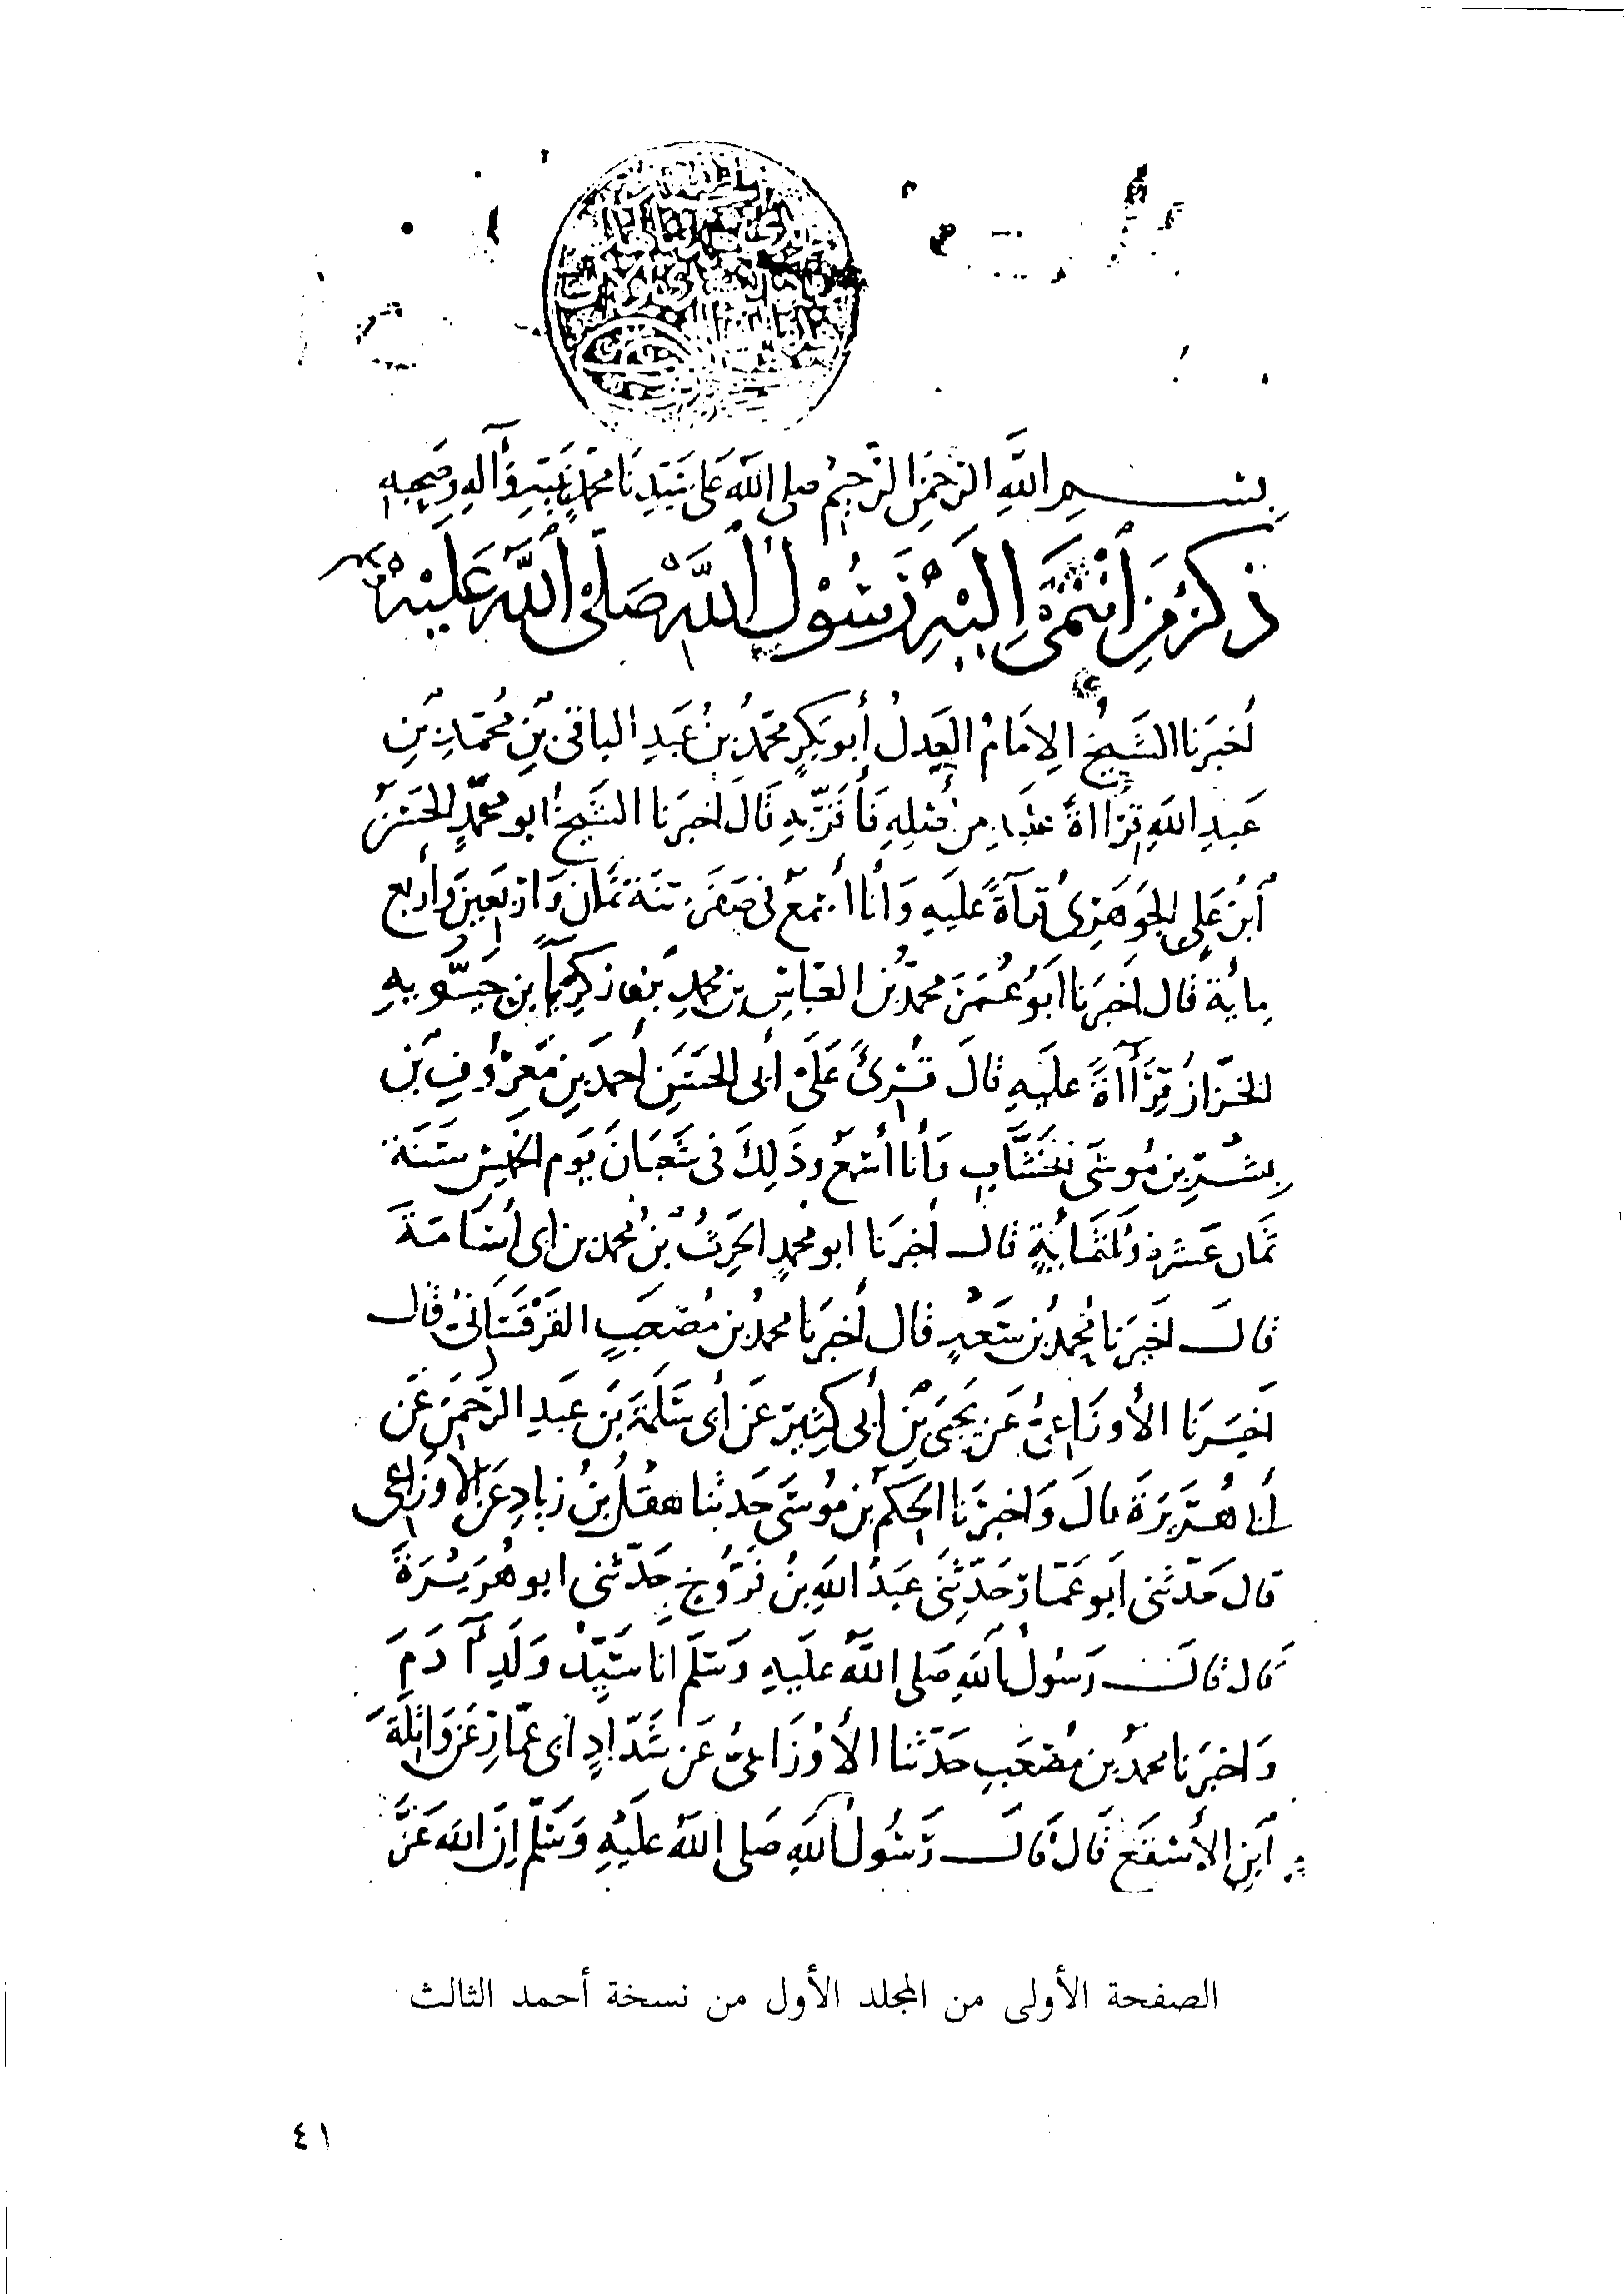 بسم الله الرحمن الرحيم صلى الله على سيدنا محمد نبيه وآله وصحبه
ذكر من انتمى إليه رسول الله صلى الله عليه
أخبرنا الشيخ الإمام العدل أبو بكر محمد بن عبد الباقي بن محمد بن
عبد الله قراءة عليه من أصله فأقر به قال أخبرنا الشيخ ابو محمد الحسن
ابن علي الجوهري قراءة عليه وأنا أسمع في صفر سنة ثمان واربعين وأربع
مائة قال اخبرنا أبو عمر محمد بن العباس بن محمد بن زكريا بن حيويه
الخزاز قراءة عليه قال قرئ على أبي الحسن أحمد بن معروف بن
بشر بن موسى الخشاب وأنا أسمع وذلك في شعبان يوم الخميس سنة
ثمان عشرة وثلثمائة قال أخبرنا ابو محمد الحرث بن محمد بن ابي أسامة
قال اخبرنا محمد بن سعد قال أخبرنا محمد بن مصعب القرقساني قال
اخبرنا الأوزاعي عن يحيى بن أبي كثير عن أبي سلمة بن عبد الرحمن عن
أبي هريرة قال وأخبرنا الحكم بن موسى حدثنا هقل بن زياد عن الاوزاعي
قال حدثني ابو عمار حدثني عبد الله بن فروخ حدثني ابو هريرة
قال قال رسول الله صلى الله عليه وسلم انا سيد ولد آدم
واخبرنا محمد بن مصعب حدثنا الأوزاعي عن شداد ابي عمار عن واثلة
ابن الأسقع قال قال رسول الله صلى الله عليه وسلم إن الله عز
الصفحة الأولى من المجلد الأول من نسخة أحمد الثالث
٤١